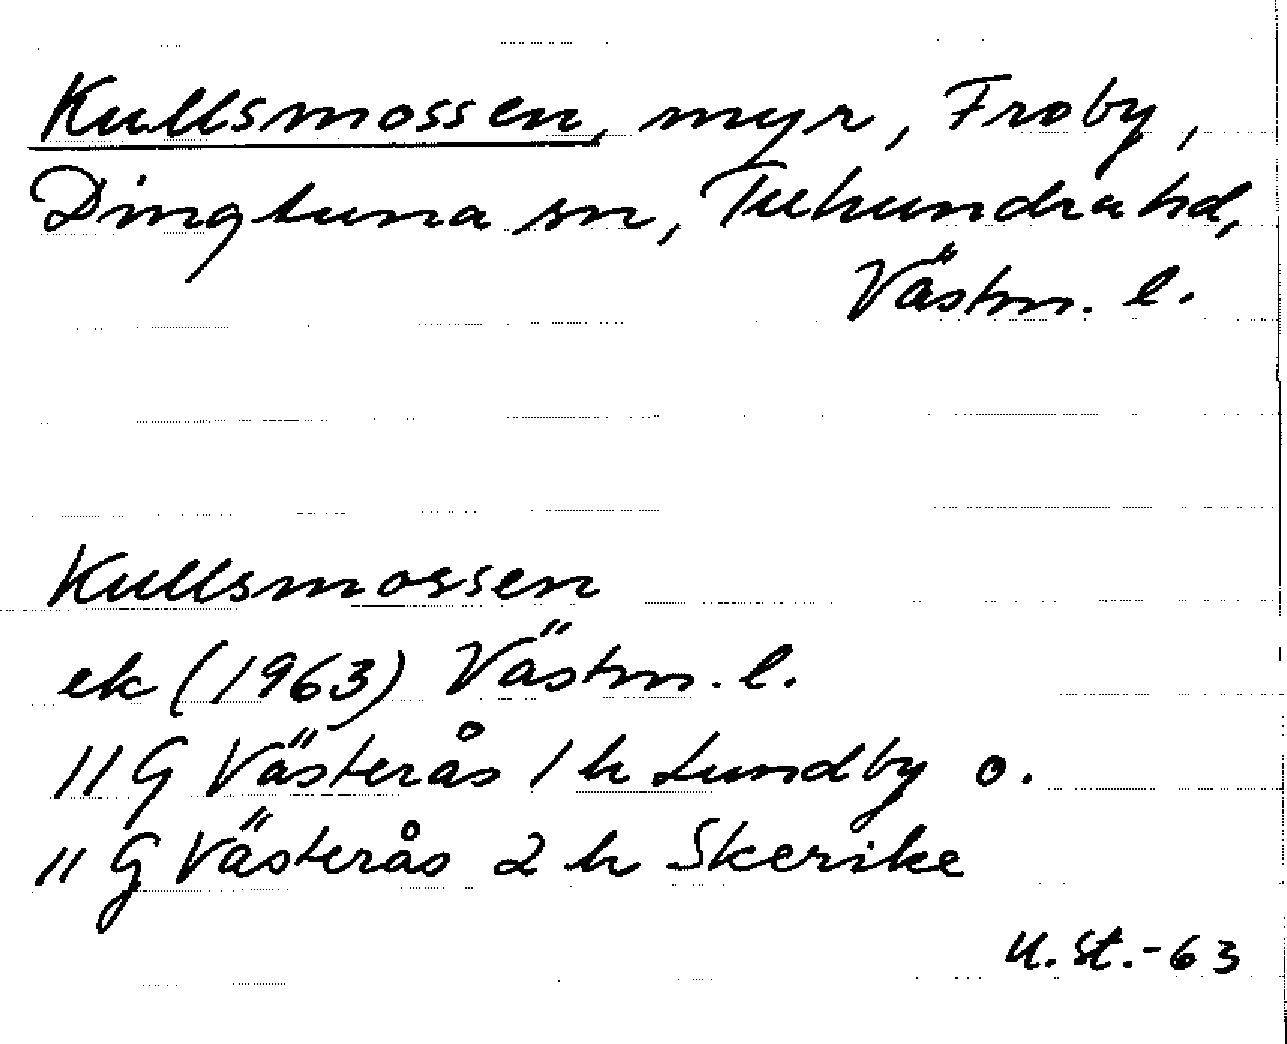 Kullsmossen, myr, Froby,
Dingtuna sn, Tuhundra hd,
Västm. l.
Kullsmossen
ek (1963) Västm. l.
11 G Västerås 1 h Lundby o.
11 G Västerås 2 h Skerike
U. St.-63